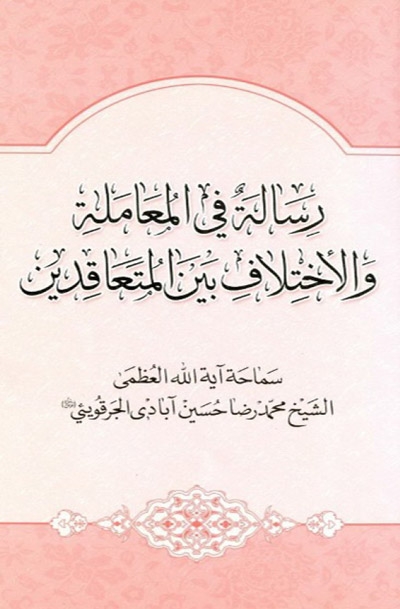 رِسَالَةٌ فِي المُعَامَلَةِ
وَالأخْتِلَافِ بَيْنَ المُتَعَاقِدِين
سَمَاحَة آيَة الله العُظمَى
الشَيْخ مُحَمَّد رضَا حُسَيْن آبَادِي الجَرقُويِيْ